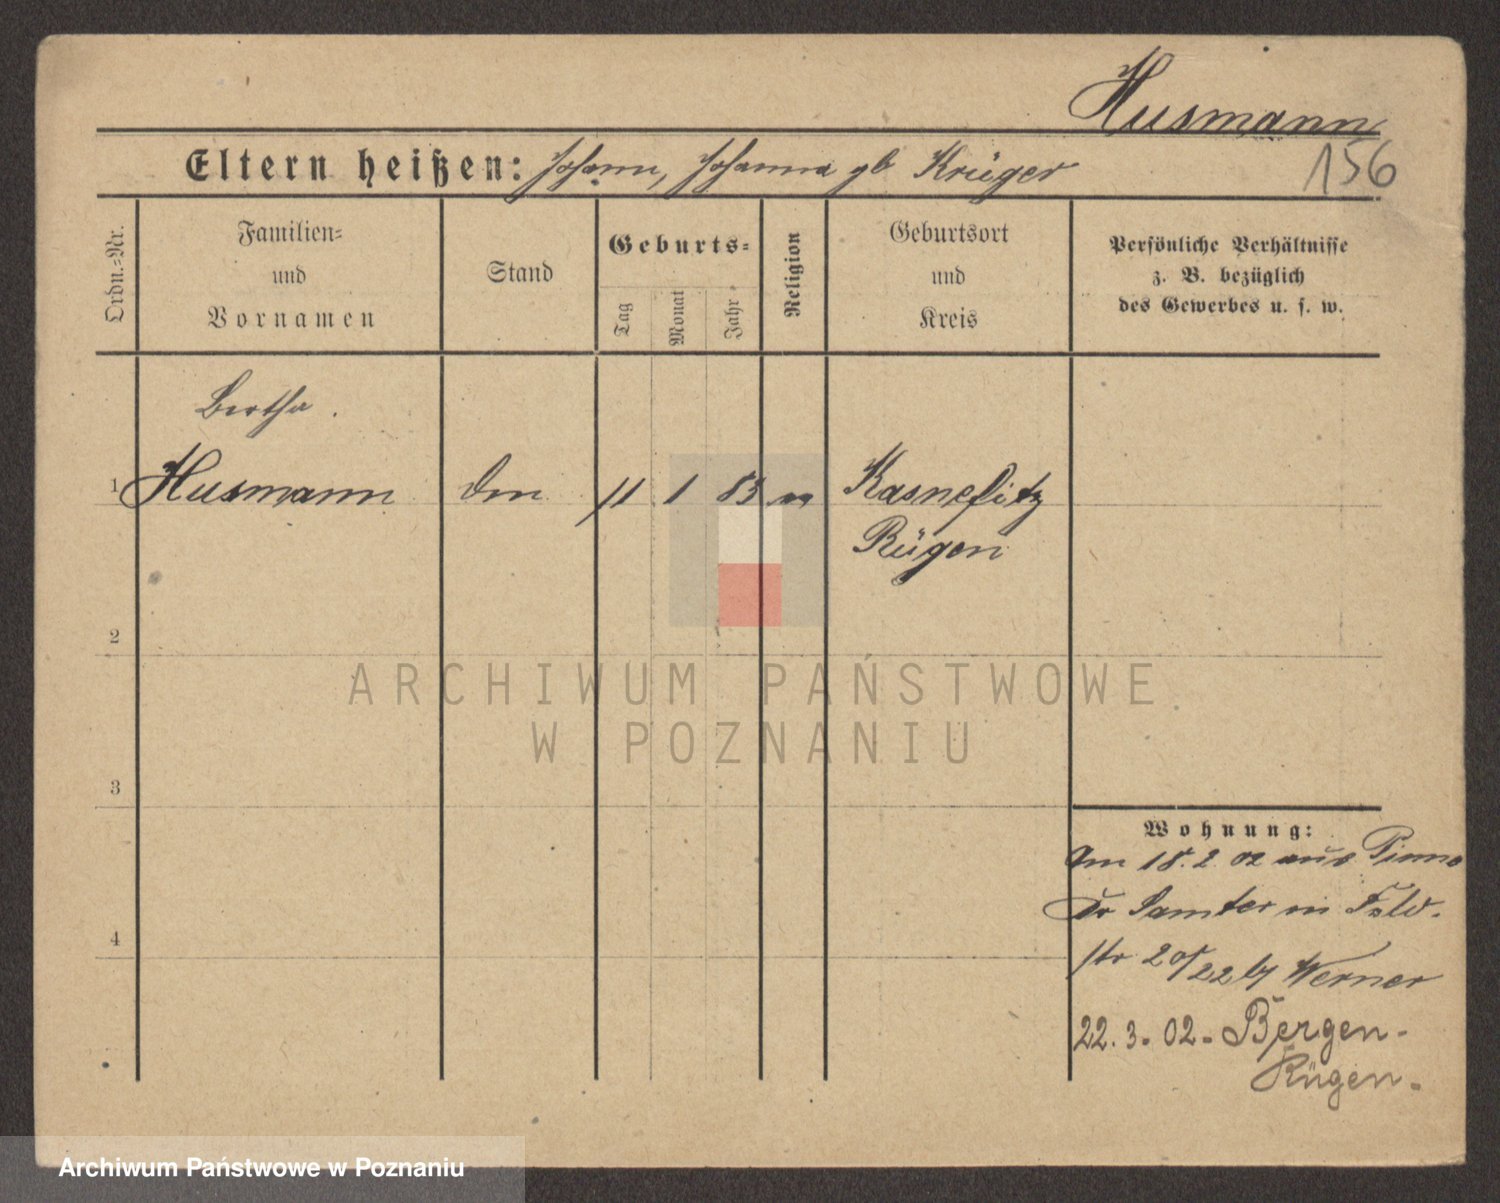 Husmann
156
Eltern heißen: Johann, Johanna gb Krüger
Ordn.=Nr.
Familien=
und
Vornamen
Stand
Geburts=
Tag
Monat
Jahr
Religion
Geburtsort
und
Kreis
Persönliche Verhältnisse
z. B. bezüglich
des Gewerbes u. s. w.
Bertha.
1 Husmann 11 1 83 Kasnefitz
Rügen
2
3
4
ARCHIWUM PAŃSTWOWE
W POZNANIU
Wohnung:
Am 18.2.02 aus Pinne
Kr Samter in Feld-
str 20/22 by Werner
22.3.02- Bergen-
Rügen-
Archiwum Państwowe w Poznaniu